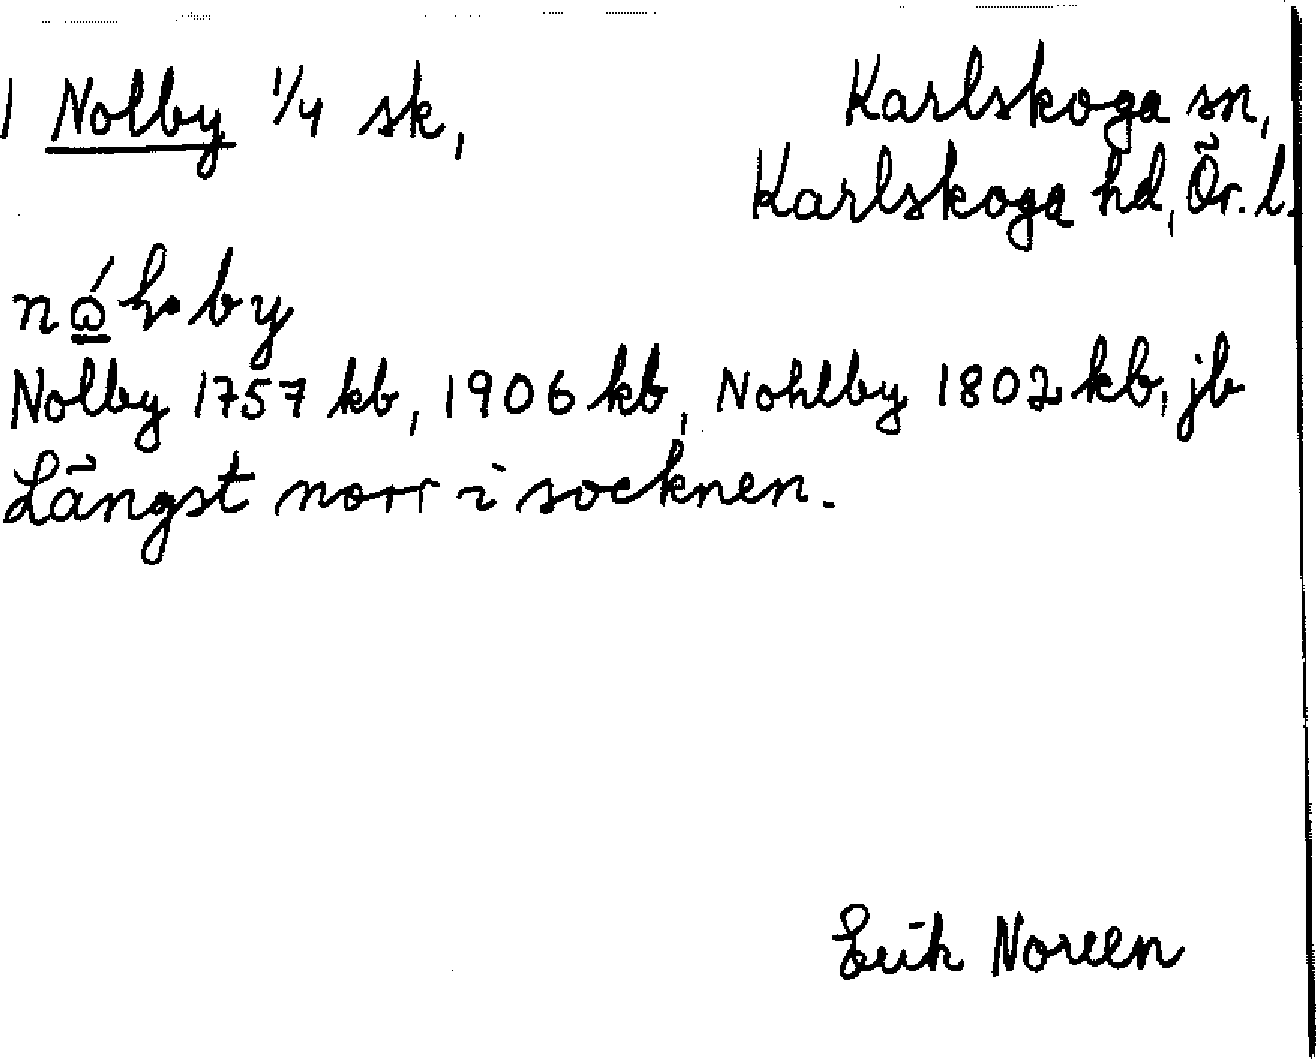 1 Nolby 1/4 sk, Karlskoga sn,
Karlskoga hd, Ör. l.
Nolby 1757 kb, 1906 kb, Nohlby 1802 kb, jb
Längst norr i socknen.
Erik Noreen